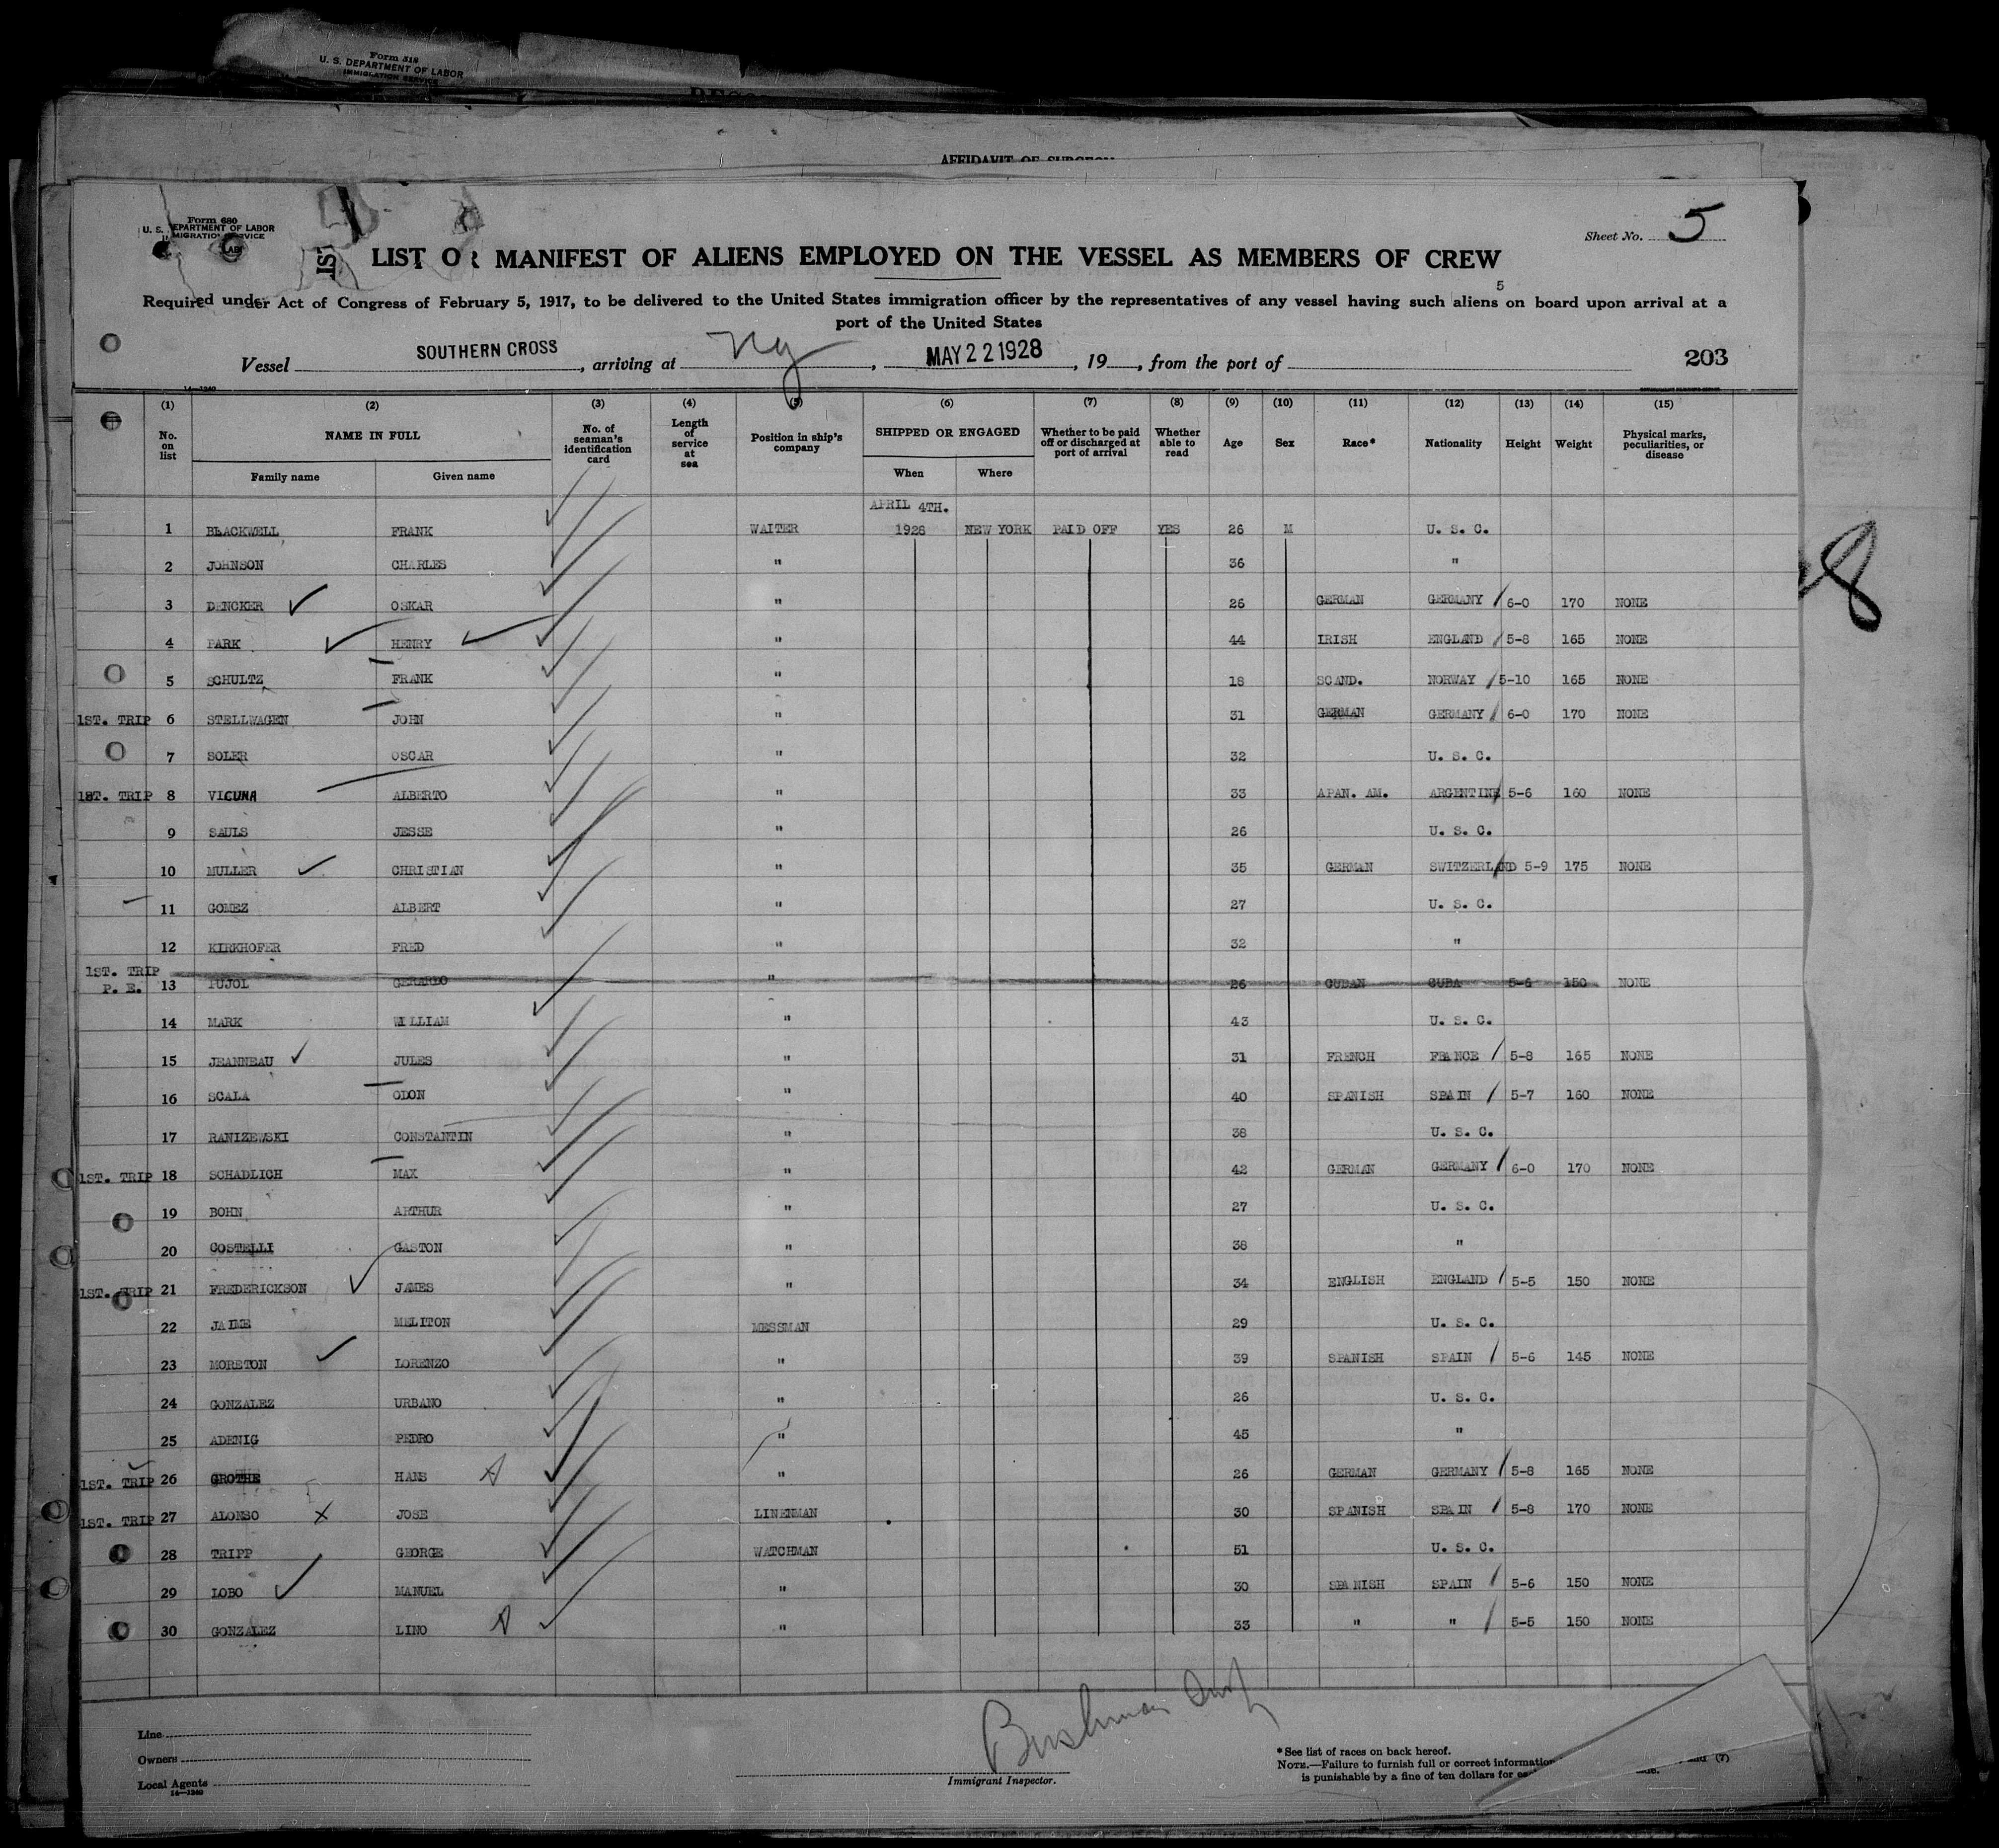 Form 318
U. S. DEPARTMENT OF LABOR
IMMIGRATION SERVICE
AFFIDAVIT OF SURGEON
Form 680
U. S. DEPARTMENT OF LABOR
IMMIGRATION SERVICE
Sheet No. 5
LIST OR MANIFEST OF ALIENS EMPLOYED ON THE VESSEL AS MEMBERS OF CREW
5
Required under Act of Congress of February 5, 1917, to be delivered to the United States immigration officer by the representatives of any vessel having such aliens on board upon arrival at a
port of the United States
Vessel SOUTHERN CROSS, arriving at Ny, MAY 22 1928, 19, from the port of 203
14—1240
(1) (2) (3) (4) (5) (6) (7) (8) (9) (10) (11) (12) (13) (14) (15)
No. on list NAME IN FULL No. of seaman's identification card Length of service at sea Position in ship's company SHIPPED OR ENGAGED Whether to be paid off or discharged at port of arrival Whether able to read Age Sex Race* Nationality Height Weight Physical marks, peculiarities, or disease
Family name Given name When Where
APRIL 4TH.
1 BLACKWELL FRANK WAITER 1928 NEW YORK PAID OFF YES 26 M U. S. C.
2 JOHNSON CHARLES " 36 "
3 DENCKER OSKAR " 26 GERMAN GERMANY 6-0 170 NONE
4 PARK HENRY " 44 IRISH ENGLAND 5-8 165 NONE
5 SCHULTZ FRANK " 18 SCAND. NORWAY 5-10 165 NONE
1ST. TRIP 6 STELLWAGEN JOHN " 31 GERMAN GERMANY 6-0 170 NONE
7 SOLER OSCAR " 32 U. S. C.
1ST. TRIP 8 VICUNA ALBERTO " 33 APAN. AM. ARGENTINE 5-6 160 NONE
9 SAULS JESSE " 26 U. S. C.
10 MULLER CHRISTIAN " 35 GERMAN SWITZERLAND 5-9 175 NONE
11 GOMEZ ALBERT " 27 U. S. C.
12 KIRKHOFER FRED " 32 "
1ST. TRIP
P. E. 13 PUJOL GERARDO " 26 CUBAN CUBA 5-6 150 NONE
14 MARK WILLIAM " 43 U. S. C.
15 JEANNEAU JULES " 31 FRENCH FRANCE 5-8 165 NONE
16 SCALA ODON " 40 SPANISH SPAIN 5-7 160 NONE
17 RANIZEWSKI CONSTANTIN " 38 U. S. C.
1ST. TRIP 18 SCHADLICH MAX " 42 GERMAN GERMANY 6-0 170 NONE
19 BOHN ARTHUR " 27 U. S. C.
20 COSTELLI GASTON " 38 "
1ST. TRIP 21 FREDERICKSON JAMES " 34 ENGLISH ENGLAND 5-5 150 NONE
22 JAIME MELITON MESSMAN 29 U. S. C.
23 MORETON LORENZO " 39 SPANISH SPAIN 5-6 145 NONE
24 GONZALEZ URBANO " 26 U. S. C.
25 ADENIG PEDRO " 45 "
1ST. TRIP 26 GROTHE HANS " 26 GERMAN GERMANY 5-8 165 NONE
1ST. TRIP 27 ALONSO JOSE LINENMAN 30 SPANISH SPAIN 5-8 170 NONE
28 TRIPP GEORGE WATCHMAN 51 U. S. C.
29 LOBO MANUEL " 30 SPANISH SPAIN 5-6 150 NONE
30 GONZALEZ LINO " 33 " " 5-5 150 NONE
Line
Owners
Local Agents
14—1240
Immigrant Inspector.
*See list of races on back hereof.
NOTE.—Failure to furnish full or correct information and (7)
is punishable by a fine of ten dollars for
8